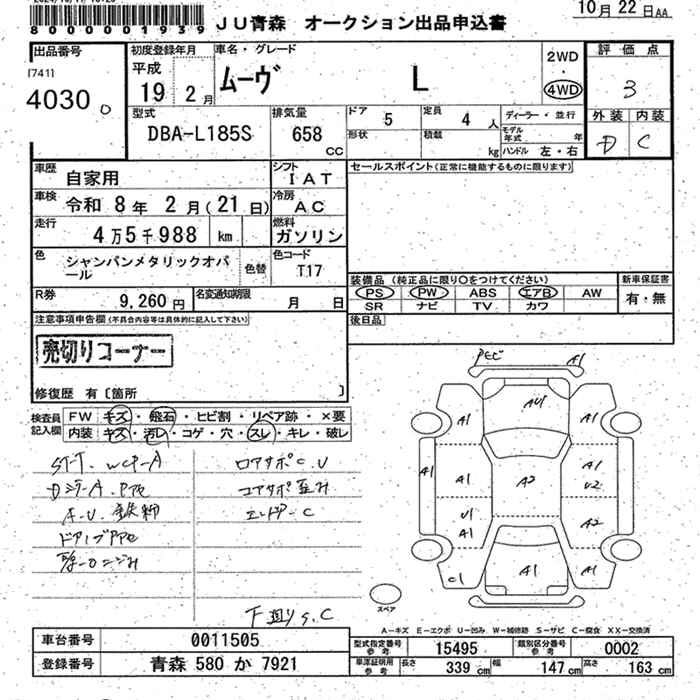 8000001939
JU青森 オークション出品申込書
10月 22日AA
出品番号
[741]
4030
初度登録年月
平成
19 2月
車名・グレード
ムーヴ L
2WD
・
4WD
評価点
3
外装 内装
D C
型式
DBA-L185S
排気量
658
cc
ドア 5
定員 4 人
形状
積載 kg
ディーラー・並行
モデル年式 年
ハンドル 左・右
車歴
自家用
シフト
IAT
車検
令和 8年 2月(21日)
冷房
AC
走行
4万5千988 km
燃料
ガソリン
色
シャンパンメタリックオパール
色替
色コード
T17
R券
9,260円
名変通知期限
月 日
セールスポイント(正常に機能するものに限ります)
装備品(純正品に限り○をつけてください)
PS PW ABS エアB AW
SR ナビ TV カワ
新車保証書
有・無
後日品
注意事項申告欄(不具合内容等は具体的に記入して下さい)
売切りコーナー
修復歴 有〔箇所 〕
検査員記入欄
FW キズ・飛石・ヒビ割・リペア跡・×要
内装 キズ・汚レ・コゲ・穴・スレ・キレ・破レ
A・U 鉄粉
コアサポ歪み
エンドア-C
下廻りS.C
A1
AU1
A1
A1
A1
A1
A2
A1
U2
U1
A1
A2
C1
A1
A1
スペア
A-キズ E-エクボ U-凹み W-補修跡 S-サビ C-腐食 XX-交換済
車台番号
0011505
登録番号
青森 580 か 7921
型式指定番号
参考
15495
類別区分番号
参考
0002
車庫証明用
参考
長さ 339 cm
幅 147 cm
高さ 163 cm